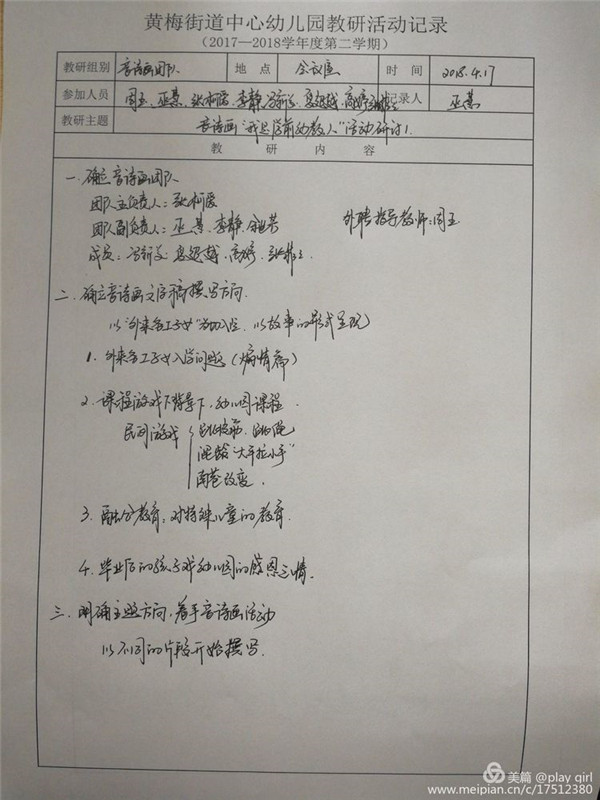 黄梅街道中心幼儿园教研活动记录
（2017—2018学年度第二学期）
教研组别 音诗画团队 地点 会议室 时间 2018.4.17
参加人员 周玉、巫慧、张柯 李静、冯新 高婷 记录人 巫慧
教研主题 音诗画"我是学前幼教人"活动研讨1.
教研内容
一、确立音诗画团队
团队主负责人：张柯
团队副负责人：巫慧、李静 外聘指导教师：周玉
成员：冯新 高婷
二、确立音诗画文字稿撰写方向
以"外来务工子女"为切入点，以故事的形式呈现
1、外来务工子女入学问题（煽情篇）
2、课程游戏下背景下，幼儿园课程
民间游戏 跳皮筋、跳绳
混龄"大手拉小手"
改变
3、融合教育：对特殊儿童的教育
4、毕业后的孩子对幼儿园的感恩之情.
三、明确主题方向，着手音诗画活动
以不同的片段开始撰写.
美篇 @play girl
www.meipian.cn/c/17512380